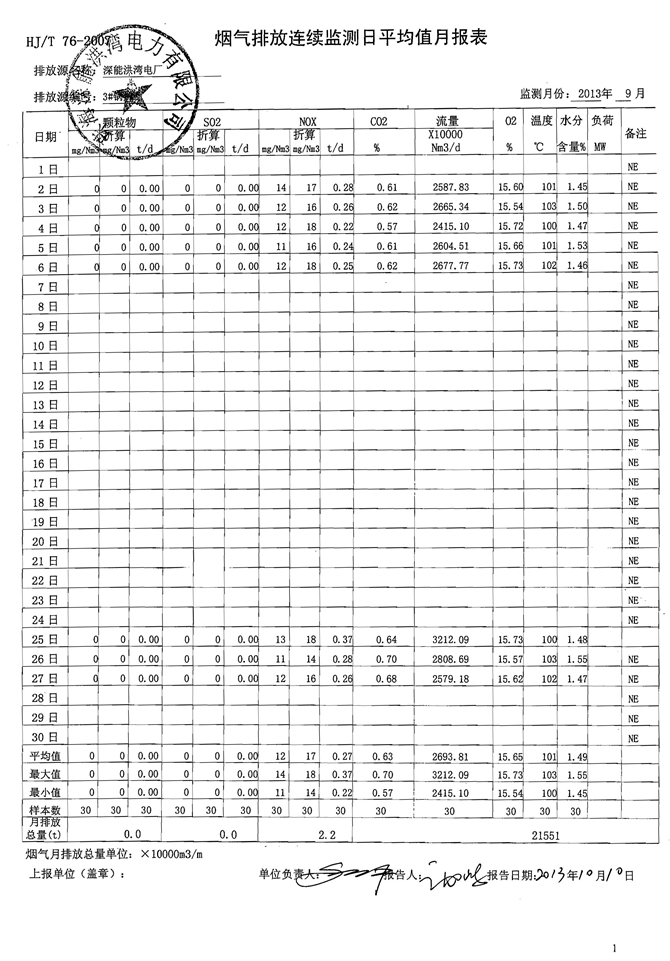 HJ/T 76-2007
烟气排放连续监测日平均值月报表
排放源名称: 深能洪湾电厂
排放源编号: 3#
监测月份: 2013年 9 月
日期 颗粒物 SO2 NOX CO2 流量 O2 温度 水分 负荷 备注
折算 折算 折算 X10000
mg/Nm3 mg/Nm3 t/d mg/Nm3 mg/Nm3 t/d mg/Nm3 mg/Nm3 t/d % Nm3/d % ℃ 含量% MW
1 日 NE
2 日 0 0 0.00 0 0 0.00 14 17 0.28 0.61 2587.83 15.60 101 1.45 NE
3 日 0 0 0.00 0 0 0.00 12 16 0.26 0.62 2665.34 15.54 103 1.50 NE
4 日 0 0 0.00 0 0 0.00 12 18 0.22 0.57 2415.10 15.72 100 1.47 NE
5 日 0 0 0.00 0 0 0.00 11 16 0.24 0.61 2604.51 15.66 101 1.53 NE
6 日 0 0 0.00 0 0 0.00 12 18 0.25 0.62 2677.77 15.73 102 1.46 NE
7 日 NE
8 日 NE
9 日 NE
10 日 NE
11 日 NE
12 日 NE
13 日 NE
14 日 NE
15 日 NE
16 日 NE
17 日 NE
18 日 NE
19 日 NE
20 日 NE
21 日 NE
22 日 NE
23 日 NE
24 日 NE
25 日 0 0 0.00 0 0 0.00 13 18 0.37 0.64 3212.09 15.73 100 1.48
26 日 0 0 0.00 0 0 0.00 11 14 0.28 0.70 2808.69 15.57 103 1.55 NE
27 日 0 0 0.00 0 0 0.00 12 16 0.26 0.68 2579.18 15.62 102 1.47 NE
28 日 NE
29 日 NE
30 日 NE
平均值 0 0 0.00 0 0 0.00 12 17 0.27 0.63 2693.81 15.65 101 1.49
最大值 0 0 0.00 0 0 0.00 14 18 0.37 0.70 3212.09 15.73 103 1.55
最小值 0 0 0.00 0 0 0.00 11 14 0.22 0.57 2415.10 15.54 100 1.45
样本数 30 30 30 30 30 30 30 30 30 30 30 30 30 30
月排放
总量(t) 0.0 0.0 2.2 21551
烟气月排放总量单位: ×10000m3/m
上报单位(盖章): 单位负责人: 报告人: 报告日期: 2013 年 10 月 10 日
1
洪湾电力有限公司